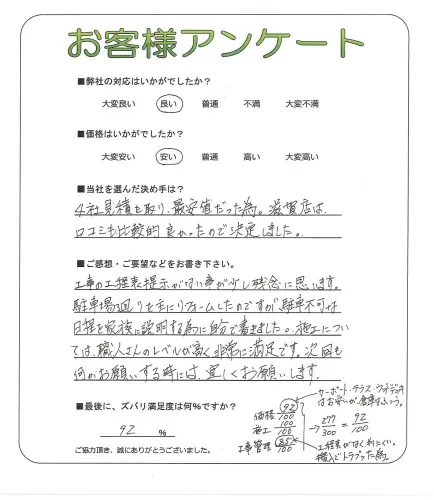 お客様アンケート
■弊社の対応はいかがでしたか?
大変良い 良い 普通 不満 大変不満
■価格はいかがでしたか?
大変安い 安い 普通 高い 大変高い
■当社を選んだ決め手は?
4社見積を取り、最安値だった為。滋賀店は、
口コミも比較的良かったので決定しました。
■ご感想・ご要望などをお書き下さい。
工事の工程表提示がない事が少し残念に思います。
駐車場廻りを主にリフォームしたのですが、駐車不可な
日程を家族に説明する為に自分で書きました。施工につい
ては、職人さんのレベルが高く非常に満足です。次回も
何かお願いする時には、宜しくお願いします。
■最後に、ズバリ満足度は何%ですか?
92 %
ご協力頂き、誠にありがとうございました。
カーポート・テラス・ウッドデッキ
はお安いが、倉庫はふつう。
価格 92/100
施工 100/100
工事管理 85/100
→ 277/300 = 92/100
工程表がなく判りにくい。
搬入でトラブった為。